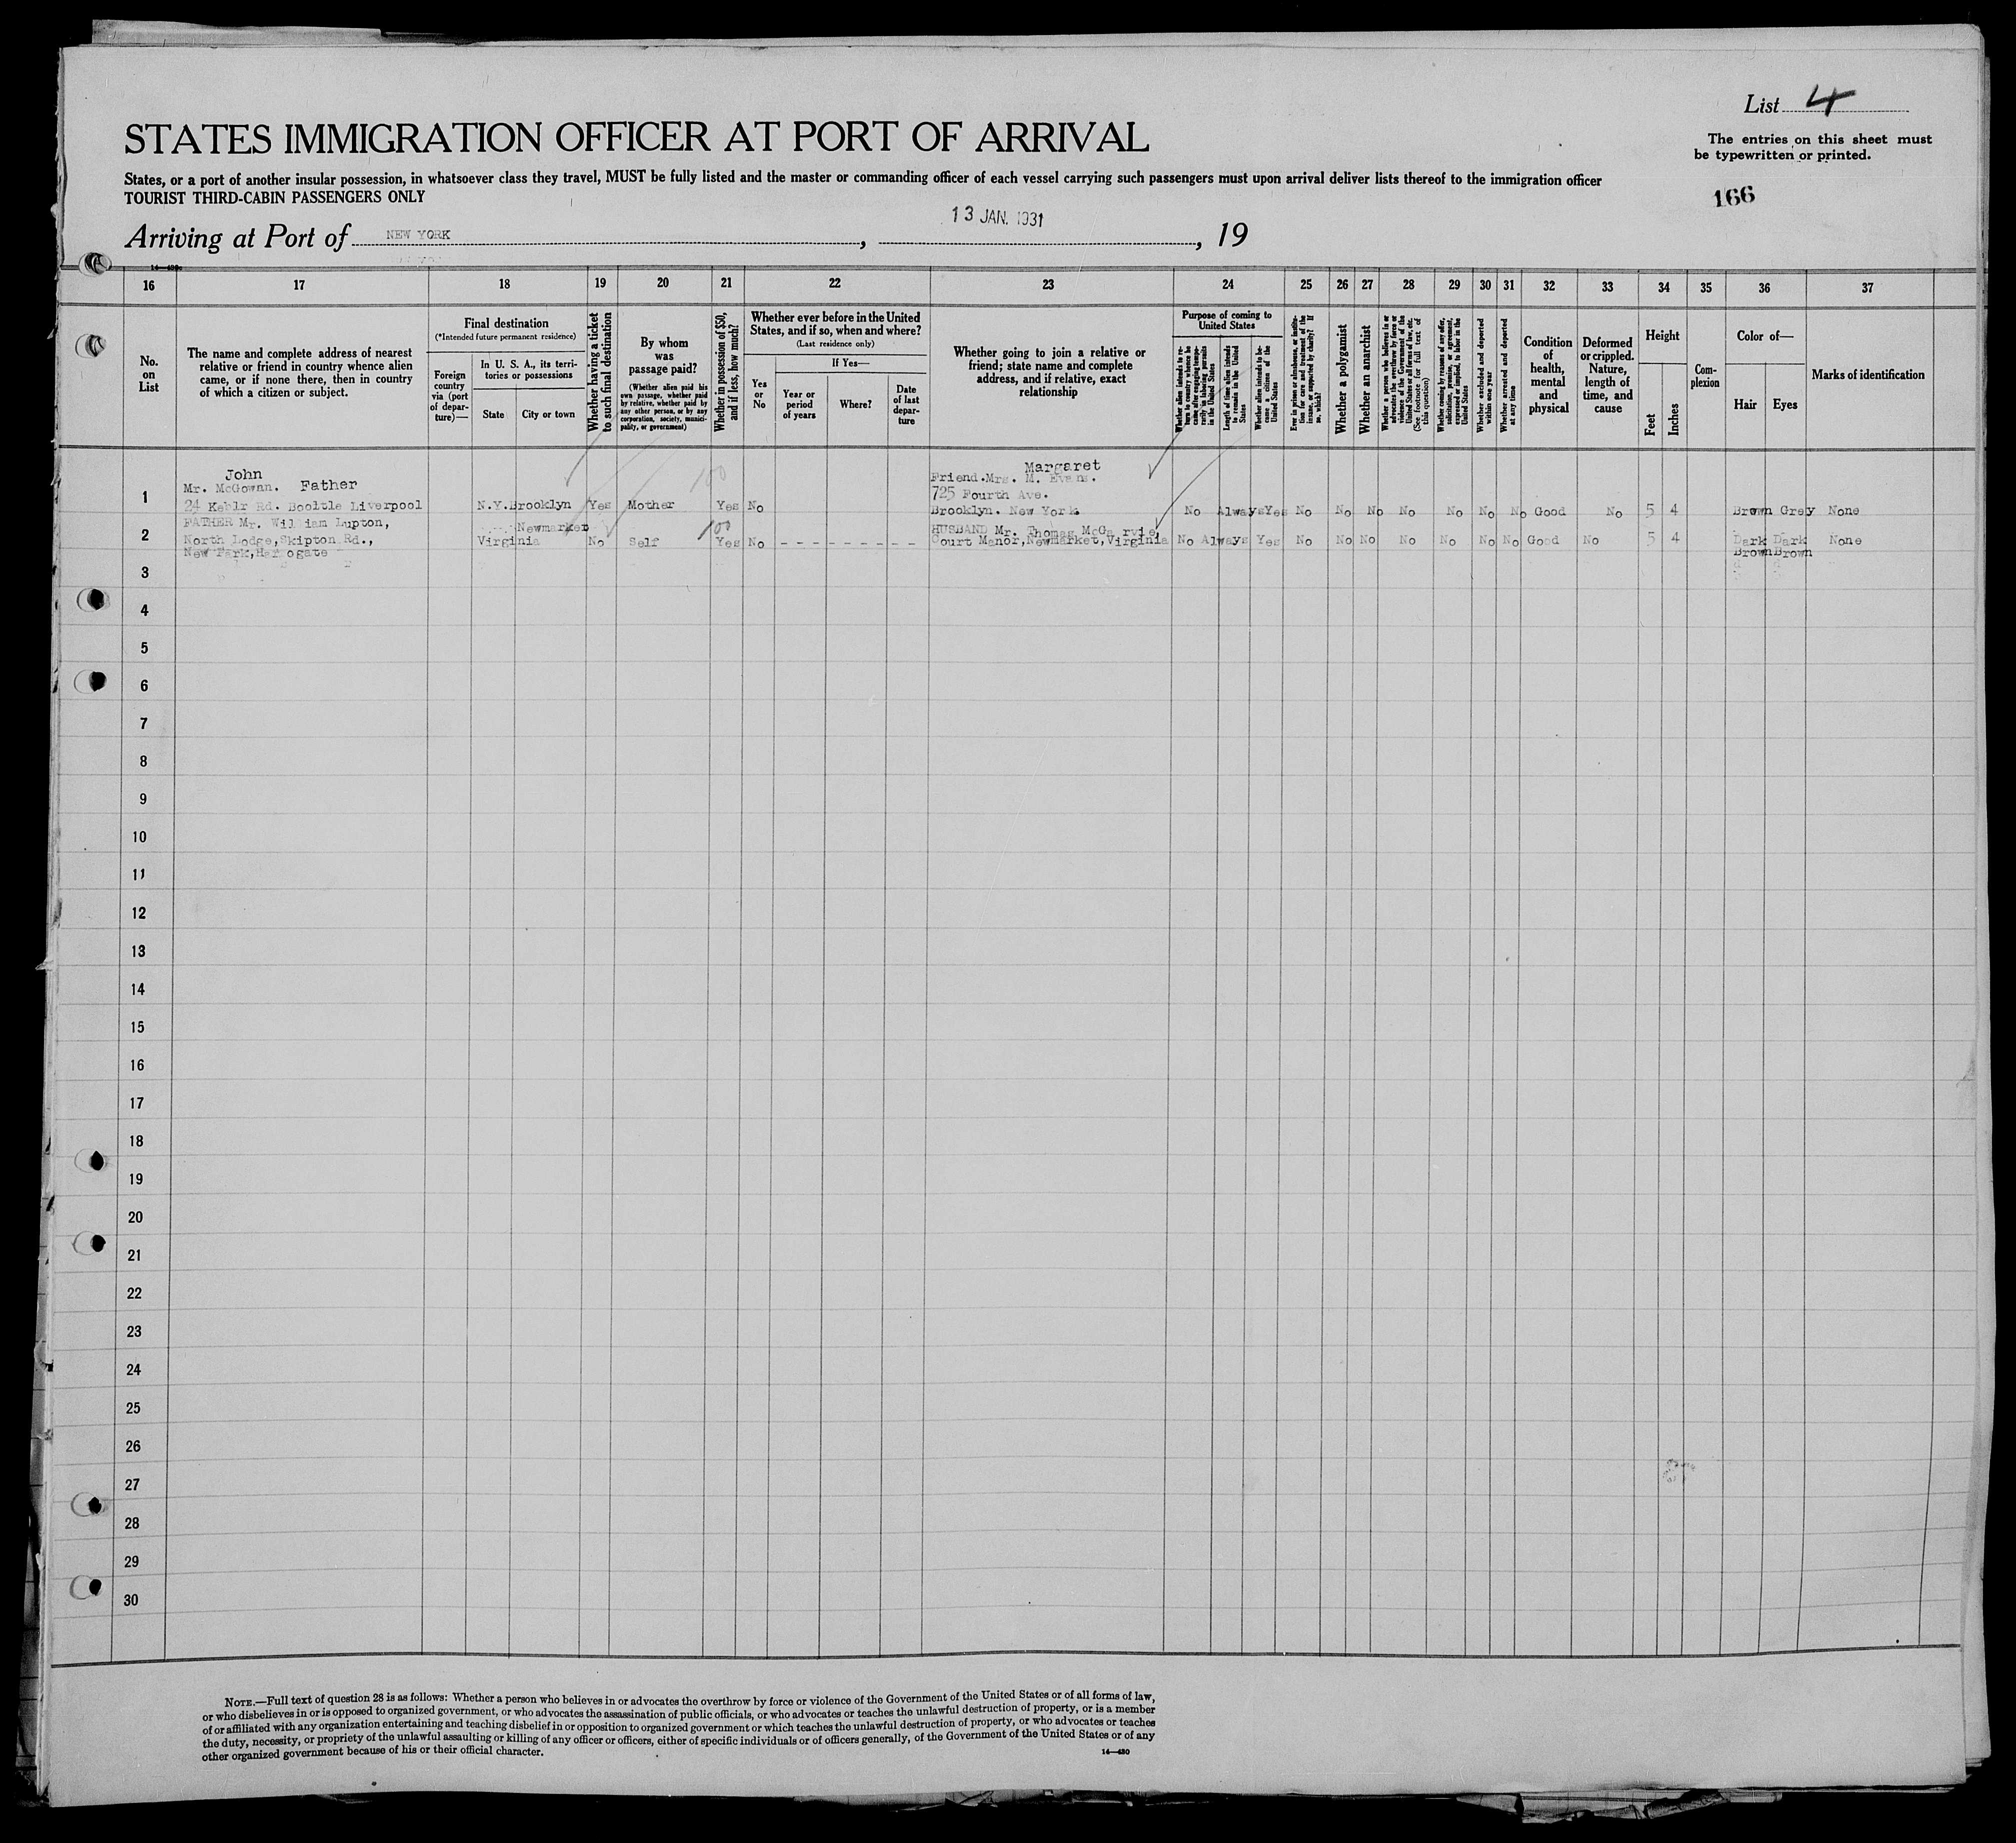 List 4
STATES IMMIGRATION OFFICER AT PORT OF ARRIVAL
The entries on this sheet must
be typewritten or printed.
States, or a port of another insular possession, in whatsoever class they travel, MUST be fully listed and the master or commanding officer of each vessel carrying such passengers must upon arrival deliver lists thereof to the immigration officer
TOURIST THIRD-CABIN PASSENGERS ONLY
166
Arriving at Port of NEW YORK, 13 JAN. 1931, 19
14—430
16 17 18 19 20 21 22 23 24 25 26 27 28 29 30 31 32 33 34 35 36 37
No.
on
List
The name and complete address of nearest
relative or friend in country whence alien
came, or if none there, then in country
of which a citizen or subject.
Final destination
(*Intended future permanent residence)
Foreign
country
via (port
of depar-
ture)—
In U. S. A., its terri-
tories or possessions
State
City or town
Whether having a ticket
to such final destination
By whom
was
passage paid?
(Whether alien paid his
own passage, whether paid
by relative, whether paid by
any other person, or by any
corporation, society, munici-
pality, or government)
Whether in possession of $50,
and if less, how much?
Whether ever before in the United
States, and if so, when and where?
(Last residence only)
Yes
or
No
If Yes—
Year or
period
of years
Where?
Date
of last
depar-
ture
Whether going to join a relative or
friend; state name and complete
address, and if relative, exact
relationship
Purpose of coming to
United States
Whether alien intends to re-
turn to country whence he
came after engaging tempo-
rarily in laboring pursuits
in the United States
Length of time alien intends
to remain in the United
States
Whether alien intends to be-
come a citizen of the
United States
Ever in prison or almshouse, or institu-
tion for care and treatment of the
insane, or supported by charity? If
so, which?
Whether a polygamist
Whether an anarchist
Whether a person who believes in or
advocates the overthrow by force or
violence of the Government of the
United States or all forms of law, etc.
(See footnote for full text of
this question)
Whether coming by reasons of any offer,
solicitation, promise, or agreement,
expressed or implied, to labor in the
United States
Whether excluded and deported
within one year
Whether arrested and deported
at any time
Condition
of
health,
mental
and
physical
Deformed
or crippled.
Nature,
length of
time, and
cause
Height
Feet
Inches
Com-
plexion
Color of—
Hair
Eyes
Marks of identification
John Margaret
Mr. McGowan. Father 100 Friend. Mrs. M. Evans.
725 Fourth Ave.
1 24 Keblr Rd. Booltle Liverpool N.Y. Brooklyn Yes Mother Yes No Brooklyn. New York. No Always Yes No No No No No No No Good No 5 4 Brown Grey None
FATHER Mr. William Lupton, Newmarket 100 HUSBAND Mr. Thomas McGarvie,
2 North Lodge, Skipton Rd., Virginia No Self Yes No - - - - - - - - Court Manor, Newmarket, Virginia No Always Yes No No No No No No No Good No 5 4 Dark Dark None
New Park, Harrogate Brown Brown
3
4
5
6
7
8
9
10
11
12
13
14
15
16
17
18
19
20
21
22
23
24
25
26
27
28
29
30
NOTE.—Full text of question 28 is as follows: Whether a person who believes in or advocates the overthrow by force or violence of the Government of the United States or of all forms of law,
or who disbelieves in or is opposed to organized government, or who advocates the assassination of public officials, or who advocates or teaches the unlawful destruction of property, or is a member
of or affiliated with any organization entertaining and teaching disbelief in or opposition to organized government or which teaches the unlawful destruction of property, or who advocates or teaches
the duty, necessity, or propriety of the unlawful assaulting or killing of any officer or officers, either of specific individuals or of officers generally, of the Government of the United States or of any
other organized government because of his or their official character.
14—430